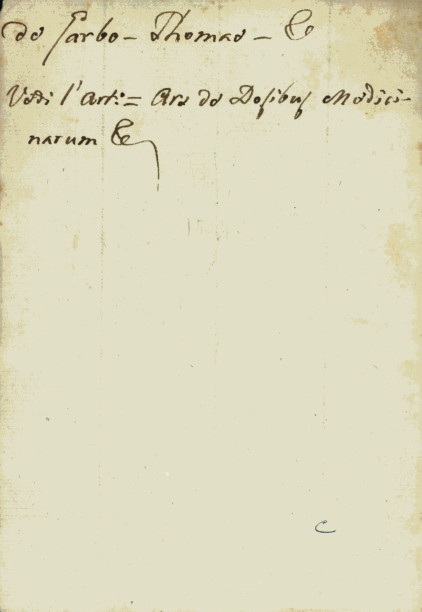 de Garbo - Thomas - &c
Vedi l'arti:= Ars de Dosibus Medici-
narum &c
c